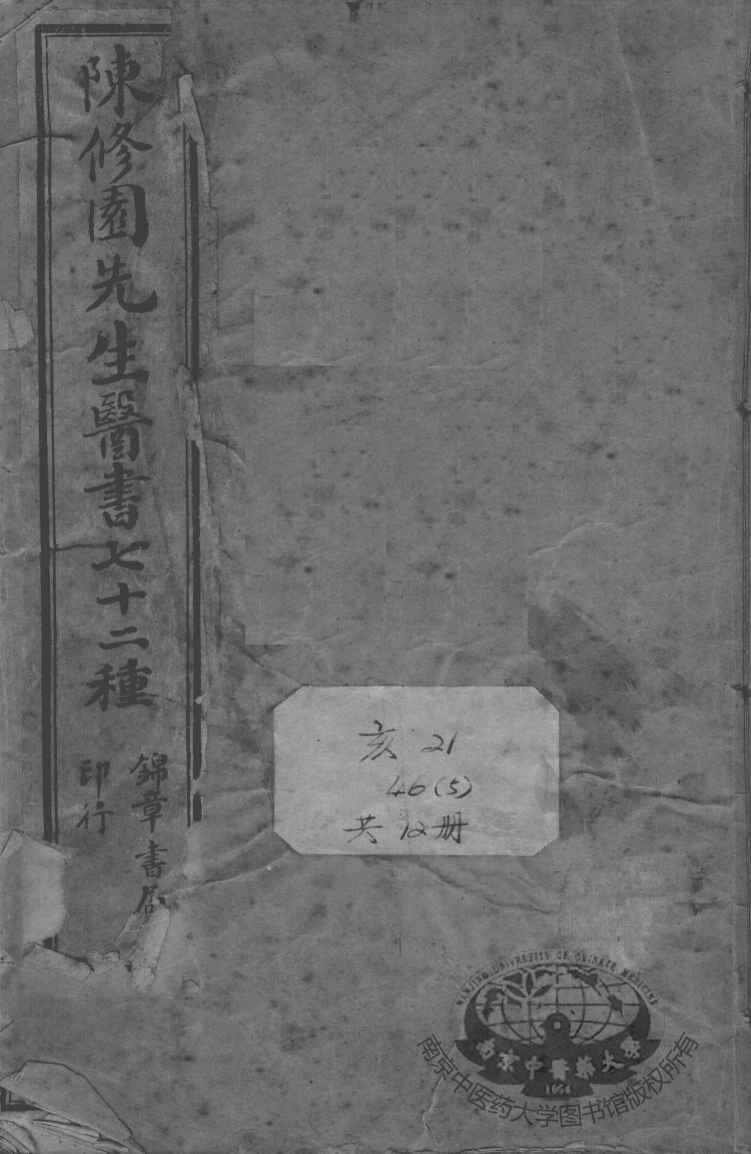 陳修園先生醫書七十二種
錦章書局
印行
亥 21
46(5)
共 12 册
NANJING UNIVERSITY OF CHINESE MEDICINE
南京中醫藥大學
1954
南京中医药大学图书馆版权所有